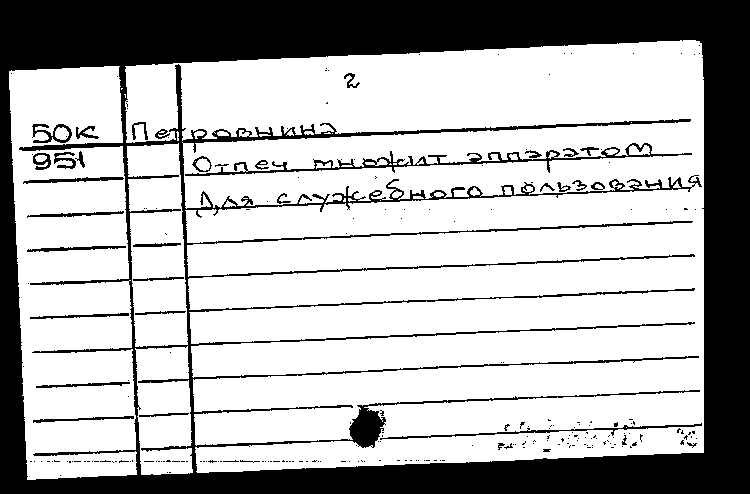 2
50К Петровнина
951 Отпеч множит аппаратом
Для служебного пользования